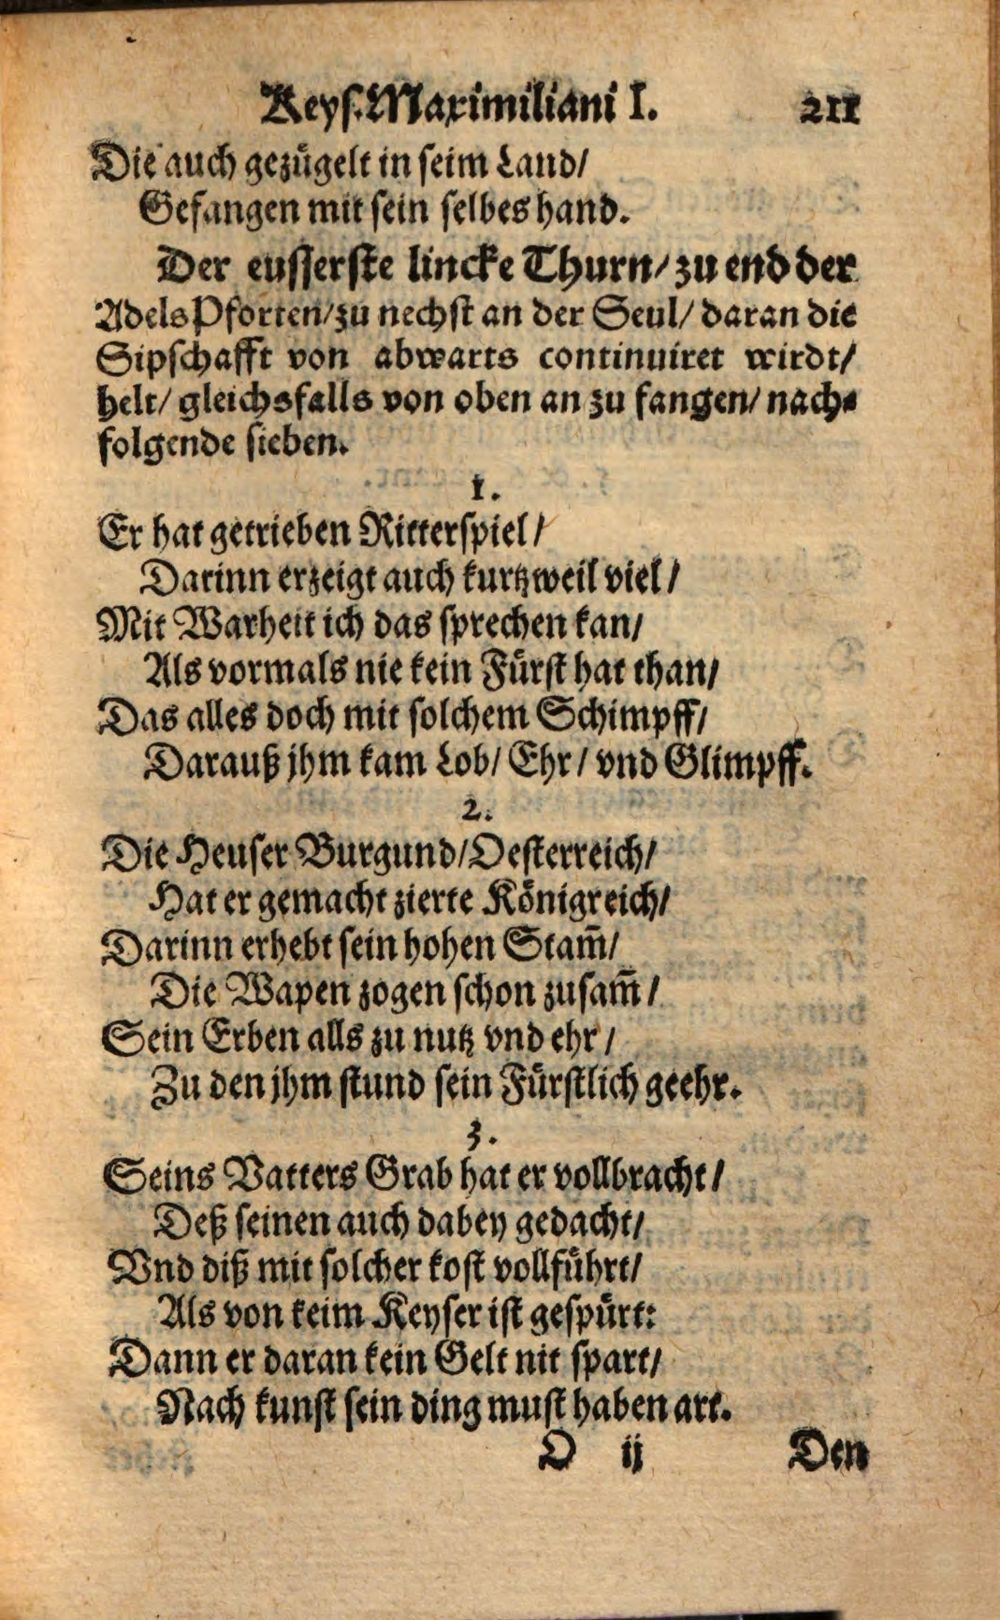 Keys. Maximiliani I. 211
Die auch gezügelt in seim Land/
Gefangen mit sein selbes hand.
Der eusserste lincke Thurn/ zu end der
Adels Pforten/ zu nechst an der Seul/ daran die
Sipschafft von abwarts continuiret wirdt/
helt/ gleichsfalls von oben an zu fangen/ nach-
folgende sieben.
1.
Er hat getrieben Ritterspiel/
Darinn erzeigt auch kurtzweil viel/
Mit Warheit ich das sprechen kan/
Als vormals nie kein Fürst hat than/
Das alles doch mit solchem Schimpff/
Darauß jhm kam Lob/ Ehr/ vnd Glimpff.
2.
Die Heuser Burgund/ Oesterreich/
Hat er gemacht zierte Königreich/
Darinn erhebt sein hohen Stam̃/
Die Wapen zogen schon zusam̃/
Sein Erben alls zu nutz vnd ehr/
Zu den jhm stund sein Fürstlich geehr.
3.
Seins Vatters Grab hat er vollbracht/
Deß seinen auch dabey gedacht/
Vnd diß mit solcher kost vollführt/
Als von keim Keyser ist gespürt:
Dann er daran kein Gelt nit spart/
Nach kunst sein ding must haben art.
O ij Den